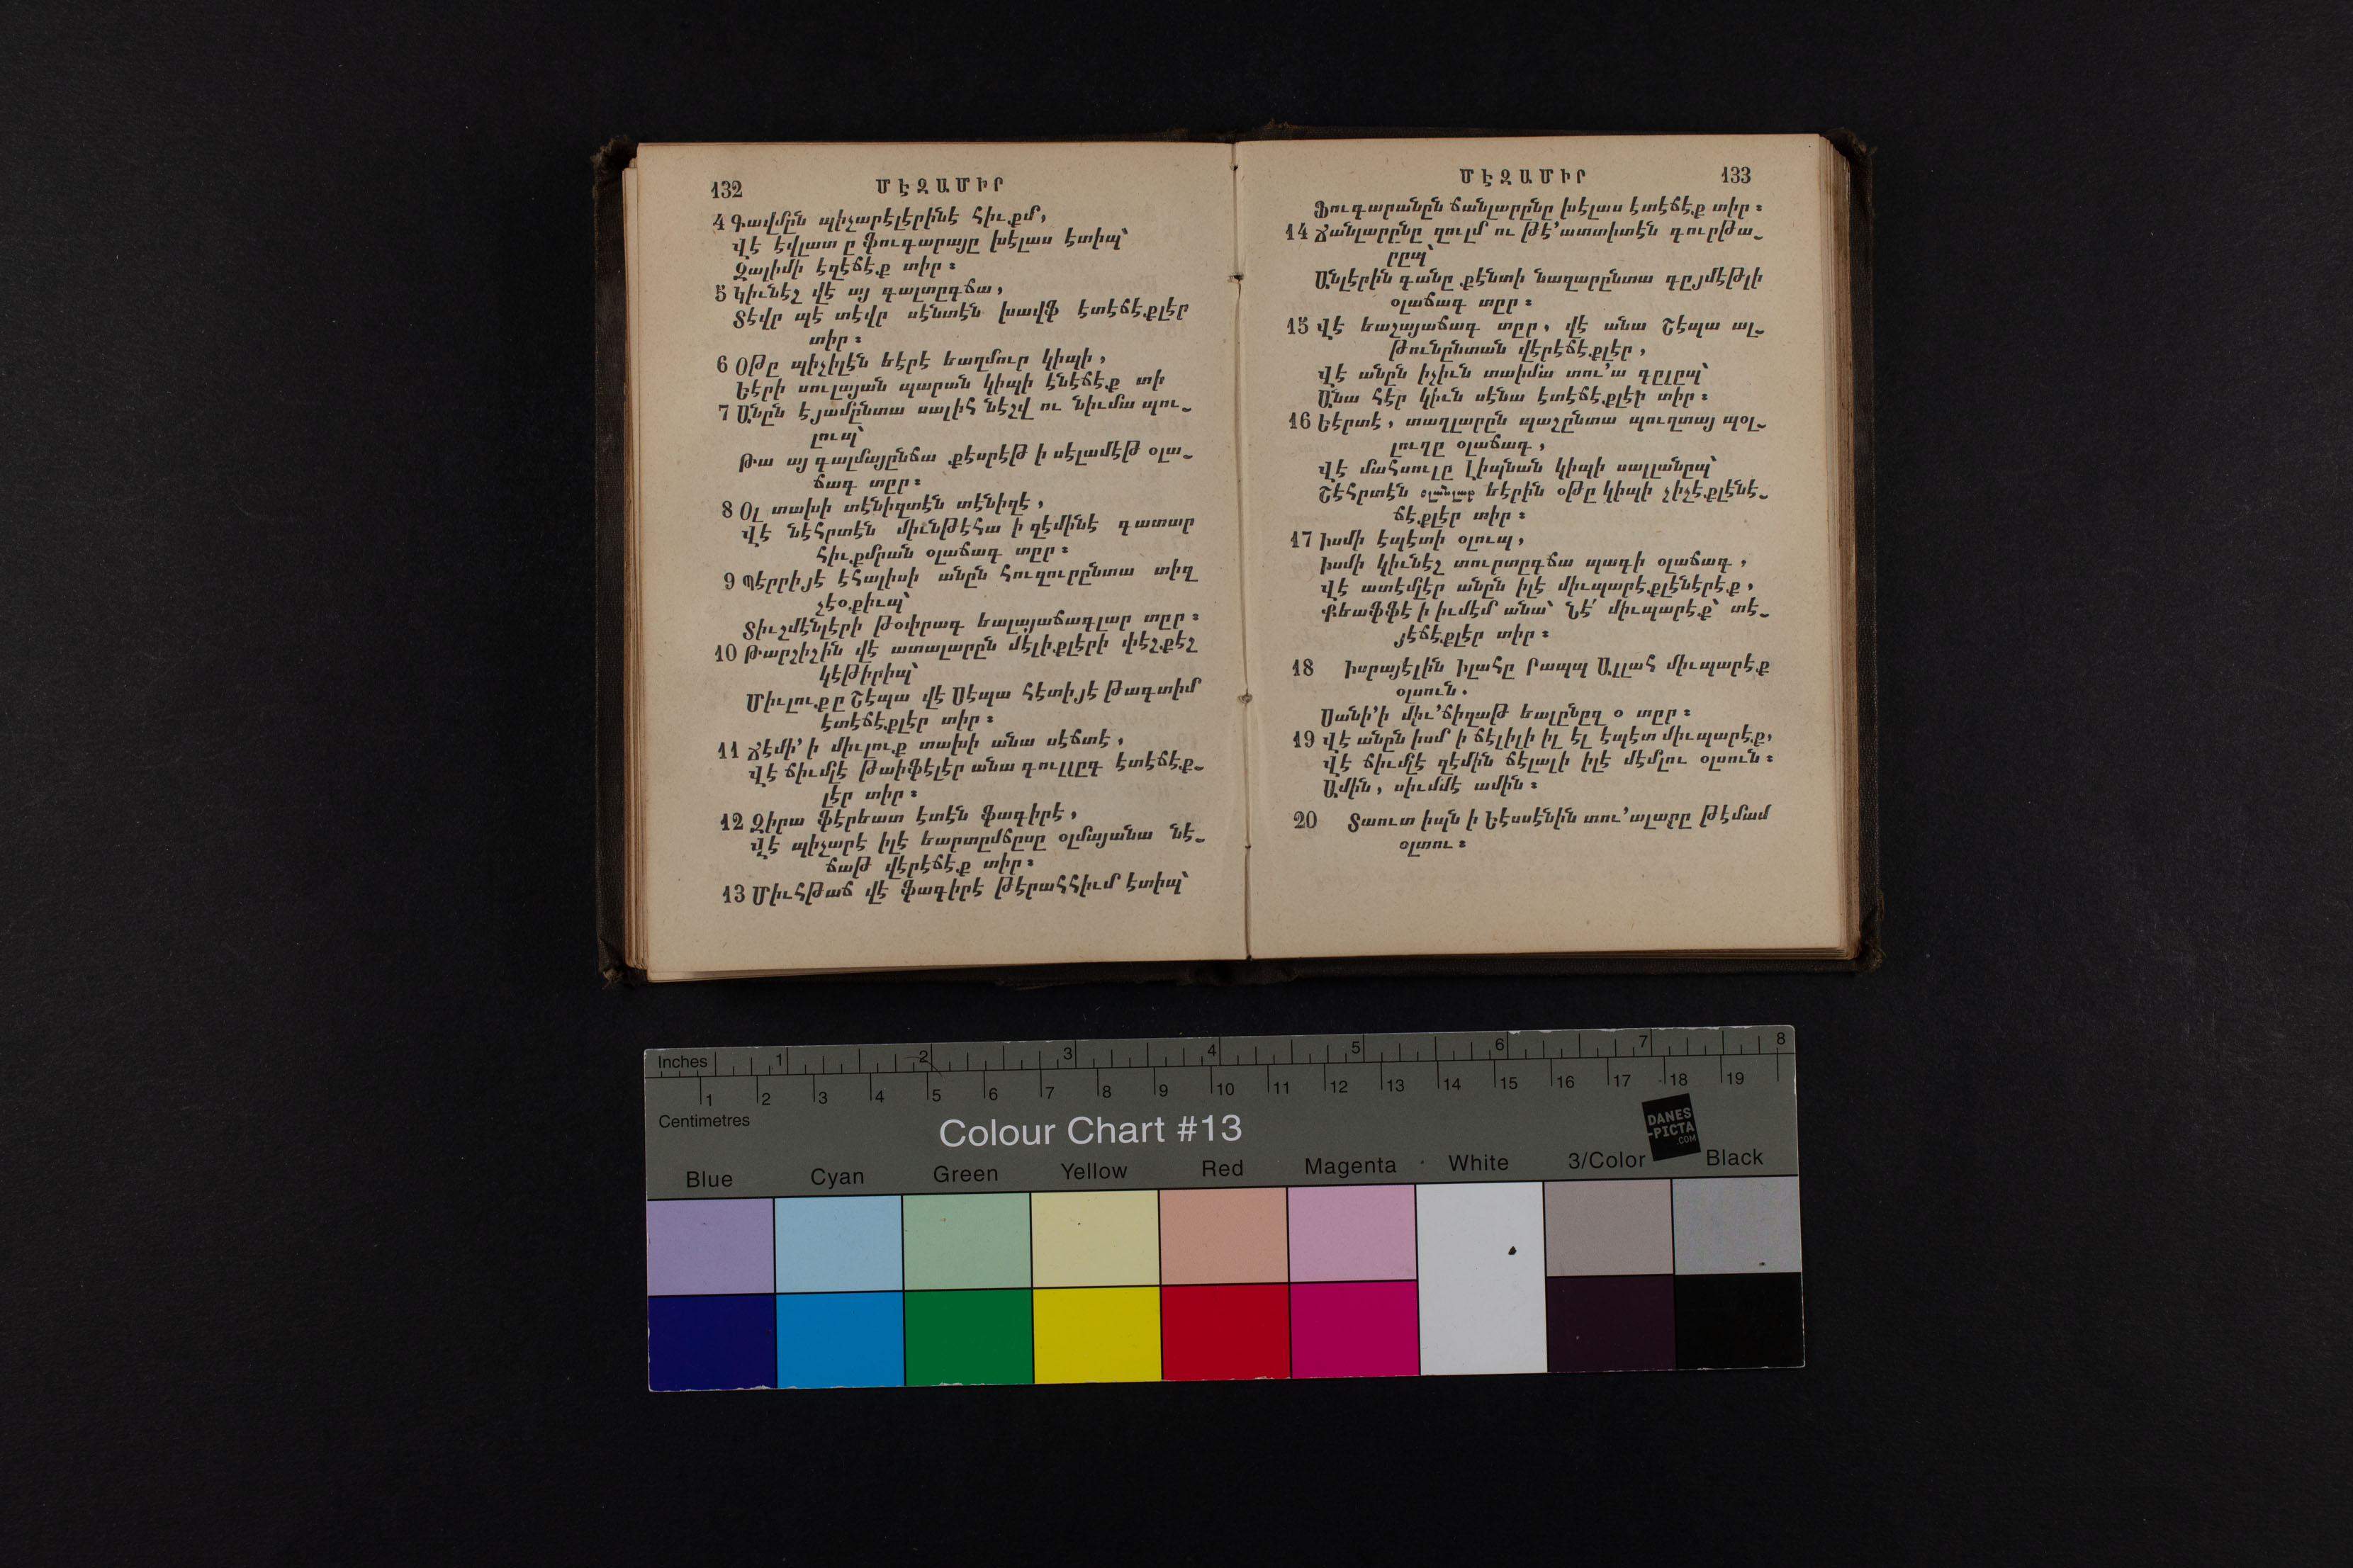 132 ՄԷԶԱՄԻՐ
4 Գավմըն պիչարէլէրինէ հիւքմ,
Վէ էվլատ ը ֆուգարայը խէլաս էտիպ՝
Զալիմի էզէճէք տիր ։
5 Կիւնէշ վէ այ գալտըգճա,
Տէվր պէ տէվր սէնտէն խավֆ էտէճէքլէր
տիր ։
6 Օթը պիչիլէն եէրէ եաղմուր կիպի,
Եէրի սուլայան պարան կիպի էնէճէք տի
7 Անըն էյամընտա սալիհ նէշվ ու նիւմա պու֊
լուպ՝
Թա այ գալմայընճա քէսրէթ ի սէլամէթ օլա֊
ճագ տըր ։
8 Օլ տախի տէնիզտէն տէնիզէ,
Վէ նէհրտէն միւնթէհա ի զէմինէ գատար
հիւքմրան օլաճագ տըր ։
9 Պէրրիյէ էհալիսի անըն հուզուրընտա տիզ
չէօքիւպ՝
Տիւշմէնլէրի թօփրագ եալայաճագլար տըր ։
10 Թարշիշին վէ ատալարըն մէլիքլէրի փէշքէշ
կէթիրիպ՝
Միւլուքը Շէպա վէ Սէպա հէտիյէ թագտիմ
էտէճէքլէր տիր ։
11 Ճէմի՚ ի միւլուք տախի անա սէճտէ,
Վէ ճիւմլէ թաիֆէլէր անա գուլլըգ էտէճէք֊
լէր տիր ։
12 Զիրա ֆէրեատ էտէն ֆագիրէ,
Վէ պիչարէ իլէ եարտըմճըսը օլմայանա նէ֊
ճաթ վէրէճէք տիր ։
13 Միւհթաճ վէ ֆագիրէ թէրահհիւմ էտիպ՝
ՄԷԶԱՄԻՐ 133
Ֆուգարանըն ճանլարընը խէլաս էտէճէք տիր ։
14 Ճանլարընը զուլմ ու թէ՚ատտիտէն գուրթա֊
րըպ՝
Անլէրին գանը քէնտի նազարընտա գըյմէթլի
օլաճագ տըր ։
15 Վէ եաշայաճագ տըր, վէ անա Շէպա ալ֊
թունընտան վէրէճէքլէր,
Վէ անըն իչիւն տաիմա տու՚ա գըլըպ՝
Անա հէր կիւն սէնա էտէճէքլէր տիր ։
16 Եէրտէ, տաղլարըն պաշընտա պուղտայ պօլ֊
լուղը օլաճագ,
Վէ մահսուլը Լիպնան կիպի սալլանըպ՝
Շէհրտէն օլանլար եէրին օթը կիպի չիչէքլէնէ֊
ճէքլէր տիր ։
17 Իսմի էպէտի օլուպ,
Իսմի կիւնէշ տուրտըգճա պագի օլաճագ,
Վէ ատէմլէր անըն իլէ միւպարէքլէնէրէք,
Քեաֆֆէ ի իւմէմ անա՝ Նէ՛ միւպարէք՝ տէ֊
յէճէքլէր տիր ։
18 Իսրայէլին Իլահը Րապպ Ալլահ միւպարէք
օլսուն.
Սանի՚ի միւ՚ճիզաթ եալընըզ օ տըր ։
19 Վէ անըն իսմ ի ճէլիլի իլ էլ էպէտ միւպարէք,
Վէ ճիւմլէ զէմին ճէլալի իլէ մէմլու օլսուն ։
Ամին, սիւմմէ ամին ։
20 Տաուտ իպն ի Եէսսէնին տու՚ալարը թէմամ
օլտու ։
Inches 1 2 3 4 5 6 7 8
1 2 3 4 5 6 7 8 9 10 11 12 13 14 15 16 17 18 19
Centimetres
Colour Chart #13
DANES
-PICTA
.COM
Blue Cyan Green Yellow Red Magenta White 3/Color Black